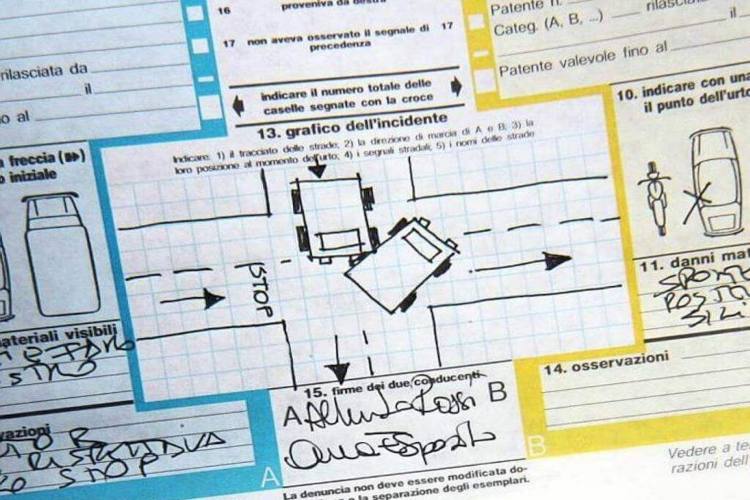 16 proveniva da destra
17 non aveva osservato il segnale di precedenza 17
indicare il numero totale delle
caselle segnate con la croce
rilasciata da
il
al
Patente n.
Categ. (A, B, ...) rilasciata
il
Patente valevole fino al
13. grafico dell'incidente
Indicare: 1) il tracciato delle strade; 2) la direzione di marcia di A e B; 3) la
loro posizione al momento dell'urto; 4) i segnali stradali; 5) i nomi delle strade
freccia
iniziale
STOP
10. indicare con una
il punto dell'urto
11. danni mat
materiali visibili
14. osservazioni
15. firme dei due conducenti
A B
STOP
A
B
La denuncia non deve essere modificata do-
la separazione degli esemplari.
Vedere a te
razioni dell